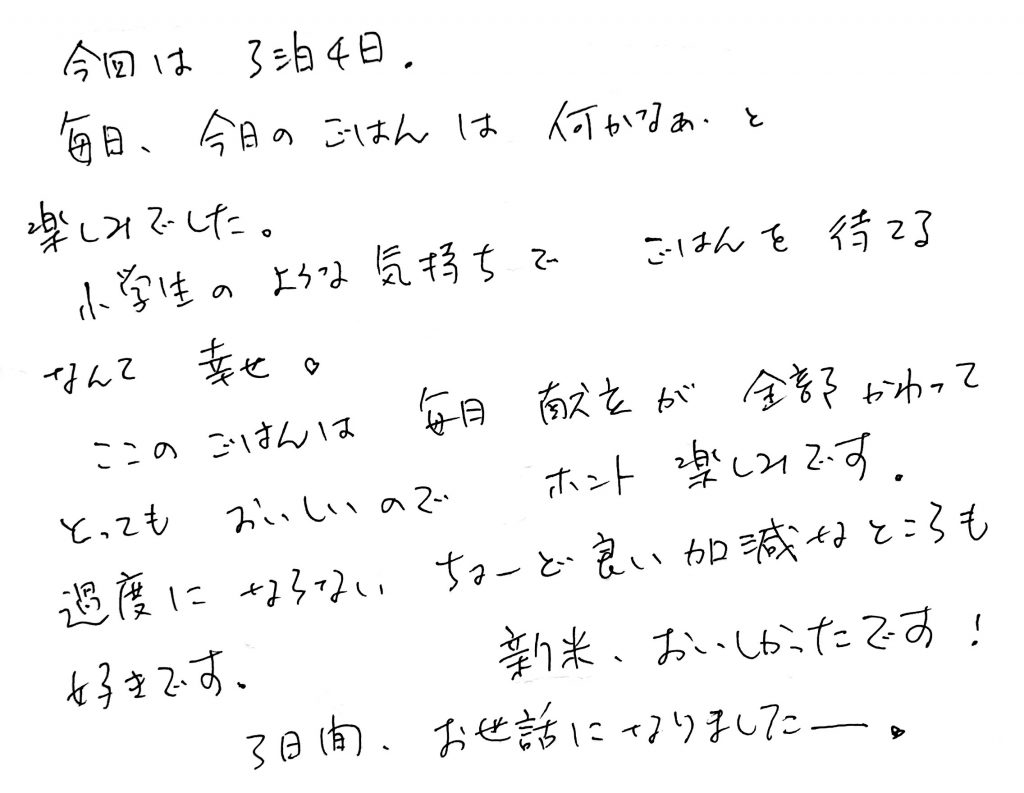 今回は 3泊4日.
毎日、今日のごはんは 何かなぁ、と
楽しみでした。
小学生のような気持ちで ごはんを待てる
なんて 幸せ。
ここのごはんは 毎日 献立が 全部かわって
とっても おいしいので ホント 楽しみです.
過度にならない ちょーど良い加減なところも
好きです. 新米、おいしかったです!
3日間、お世話になりましたー。